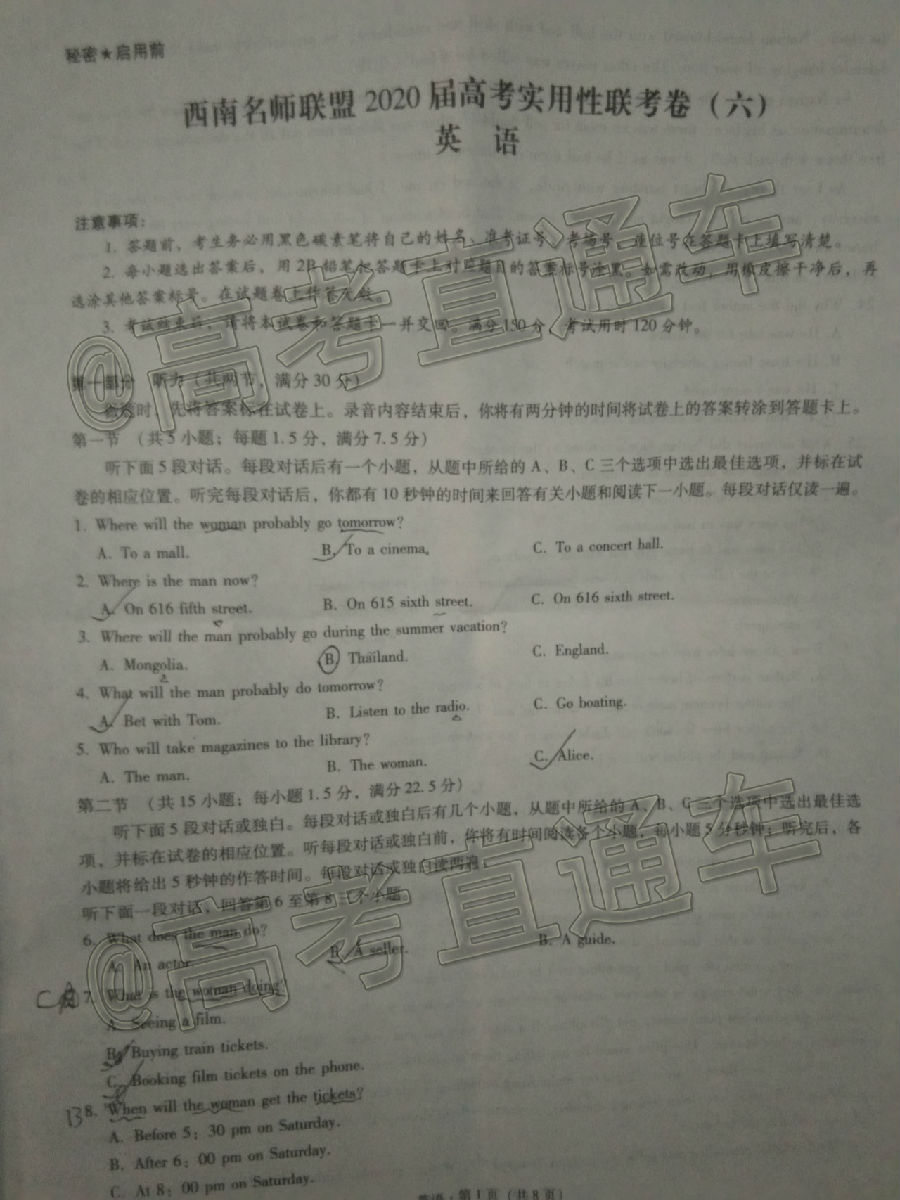 秘密★启用前
西南名师联盟 2020 届高考实用性联考卷（六）
英 语
注意事项：
1. 答题前，考生务必用黑色碳素笔将自己的姓名、准考证号、考场号、座位号在答题卡上填写清楚。
2. 每小题选出答案后，用 2B 铅笔把答题卡上对应题目的答案标号涂黑。如需改动，用橡皮擦干净后，再
选涂其他答案标号。在试题卷上作答无效。
3. 考试结束后，请将本试卷和答题卡一并交回。满分 150 分，考试用时 120 分钟。
第一部分 听力（共两节，满分 30 分）
做题时，先将答案标在试卷上。录音内容结束后，你将有两分钟的时间将试卷上的答案转涂到答题卡上。
第一节 （共 5 小题；每题 1.5 分，满分 7.5 分）
听下面 5 段对话。每段对话后有一个小题，从题中所给的 A、B、C 三个选项中选出最佳选项，并标在试
卷的相应位置。听完每段对话后，你都有 10 秒钟的时间来回答有关小题和阅读下一小题。每段对话仅读一遍。
1. Where will the woman probably go tomorrow?
A. To a mall. B. To a cinema. C. To a concert hall.
2. Where is the man now?
A. On 616 fifth street. B. On 615 sixth street. C. On 616 sixth street.
3. Where will the man probably go during the summer vacation?
A. Mongolia. B. Thailand. C. England.
4. What will the man probably do tomorrow?
A. Bet with Tom. B. Listen to the radio. C. Go boating.
5. Who will take magazines to the library?
A. The man. B. The woman. C. Alice.
第二节 （共 15 小题；每小题 1.5 分，满分 22.5 分）
听下面 5 段对话或独白。每段对话或独白后有几个小题，从题中所给的 A、B、C 三个选项中选出最佳选
项，并标在试卷的相应位置。听每段对话或独白前，你将有时间阅读各个小题，每小题 5 秒钟；听完后，各
小题将给出 5 秒钟的作答时间。每段对话或独白读两遍。
听下面一段对话，回答第 6 至第 8 三个小题。
6. What does the man do?
A. An actor. B. A seller. B. A guide.
C 7. What is the woman doing?
A. Seeing a film.
B. Buying train tickets.
C. Booking film tickets on the phone.
B 8. When will the woman get the tickets?
A. Before 5：30 pm on Saturday.
B. After 6：00 pm on Saturday.
C. At 8：00 pm on Saturday.
英语·第 1 页（共 8 页）
@高考直通车
@高考直通车